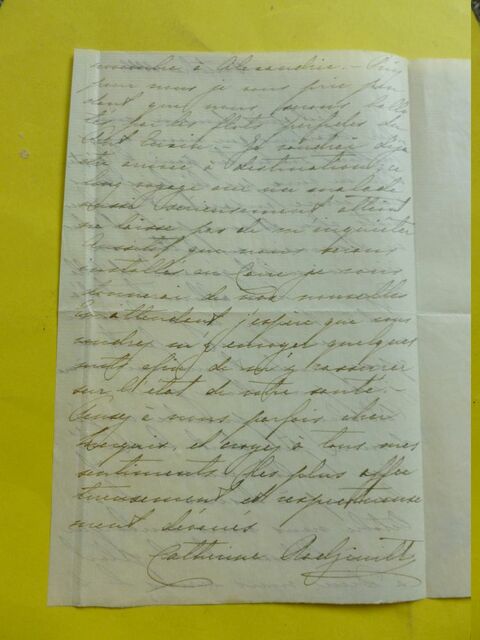 novembre à Alexandrie. — Priez
pour nous je vous prie pen
dant que nous serons ballo
tés par les flots perfides du
 — Je voudrai déja
être arrivée à destination, ce
long voyage avec un malade
aussi sérieusement atteint
ne laisse pas de m'inquiéter
 que nous serons
installés au Caire je vous
donnerai de nos nouvelles
En attendant j'espère que vous
voudrez m'y envoyer quelques
mots afin de m'y rassurer
sur l'état de votre santé —
Pensez à nous parfois cher
 et croyez à tous mes
sentiments les plus affec
tueusement et respectueuse
ment dévoués
Catherine